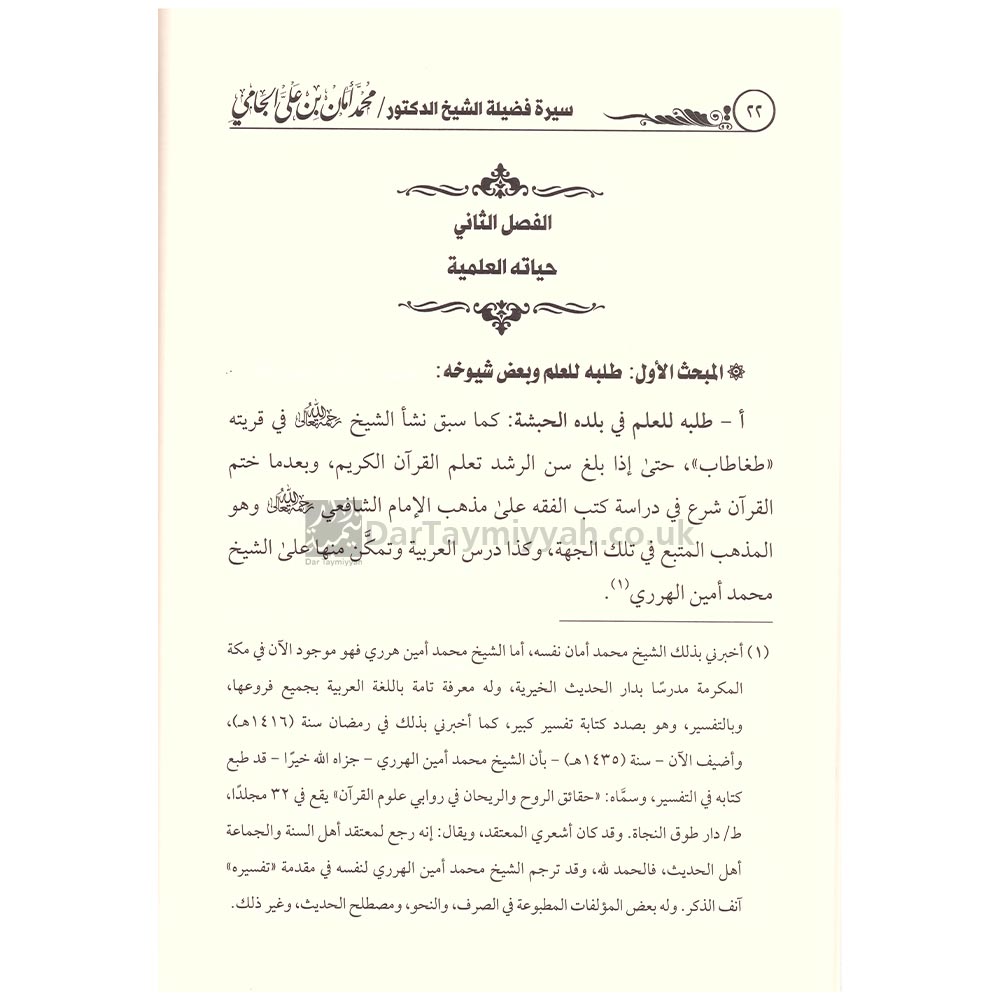 ٢٢
سيرة فضيلة الشيخ الدكتور/ محمد أمان بن علي الجامي
الفصل الثاني
حياته العلمية
المبحث الأول: طلبه للعلم وبعض شيوخه:
أ – طلبه للعلم في بلده الحبشة: كما سبق نشأ الشيخ رحمه الله تعالى في قريته
«طغاطاب»، حتىٰ إذا بلغ سن الرشد تعلم القرآن الكريم، وبعدما ختم
القرآن شرع في دراسة كتب الفقه علىٰ مذهب الإمام الشافعي رحمه الله تعالى وهو
المذهب المتبع في تلك الجهة، وكذا درس العربية وتمكَّن منها علىٰ الشيخ
محمد أمين الهرري(١).
(١) أخبرني بذلك الشيخ محمد أمان نفسه، أما الشيخ محمد أمين هرري فهو موجود الآن في مكة
المكرمة مدرسًا بدار الحديث الخيرية، وله معرفة تامة باللغة العربية بجميع فروعها،
وبالتفسير، وهو بصدد كتابة تفسير كبير، كما أخبرني بذلك في رمضان سنة (١٤١٦هـ)،
وأضيف الآن – سنة (١٤٣٥هـ) – بأن الشيخ محمد أمين الهرري – جزاه الله خيرًا – قد طبع
كتابه في التفسير، وسمَّاه: «حقائق الروح والريحان في روابي علوم القرآن» يقع في ٣٢ مجلدًا،
ط/ دار طوق النجاة. وقد كان أشعري المعتقد، ويقال: إنه رجع لمعتقد أهل السنة والجماعة
أهل الحديث، فالحمد لله، وقد ترجم الشيخ محمد أمين الهرري لنفسه في مقدمة «تفسيره»
آنف الذكر. وله بعض المؤلفات المطبوعة في الصرف، والنحو، ومصطلح الحديث، وغير ذلك.
DarTaymiyyah.co.uk
Dar Taymiyyah